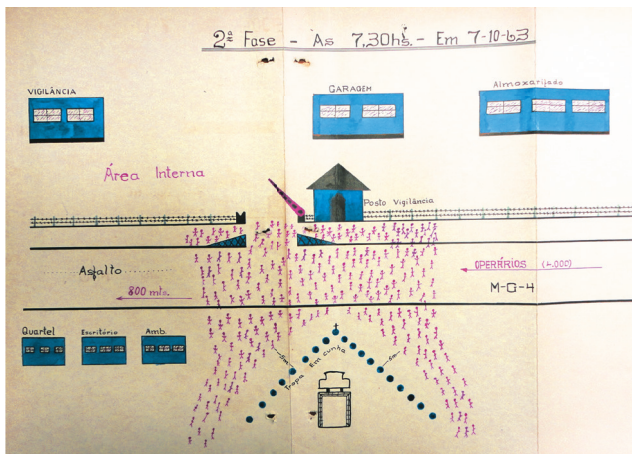 2ª Fase - As 7,30hs. - Em 7-10-63
VIGILÂNCIA
GARAGEM
Almoxarifado
Área Interna
Posto Vigilância
Asfalto
800 mts.
OPERÁRIOS (4.000)
M-G-4
Quartel
Escritório
Amb.
5m
Tropa Em cunha
5m